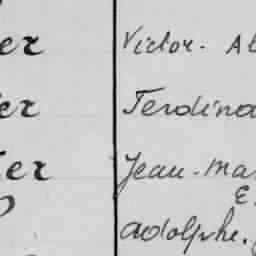 er Victor. Al
er Ferdina
er Jean-Mar
E.
adolphe.